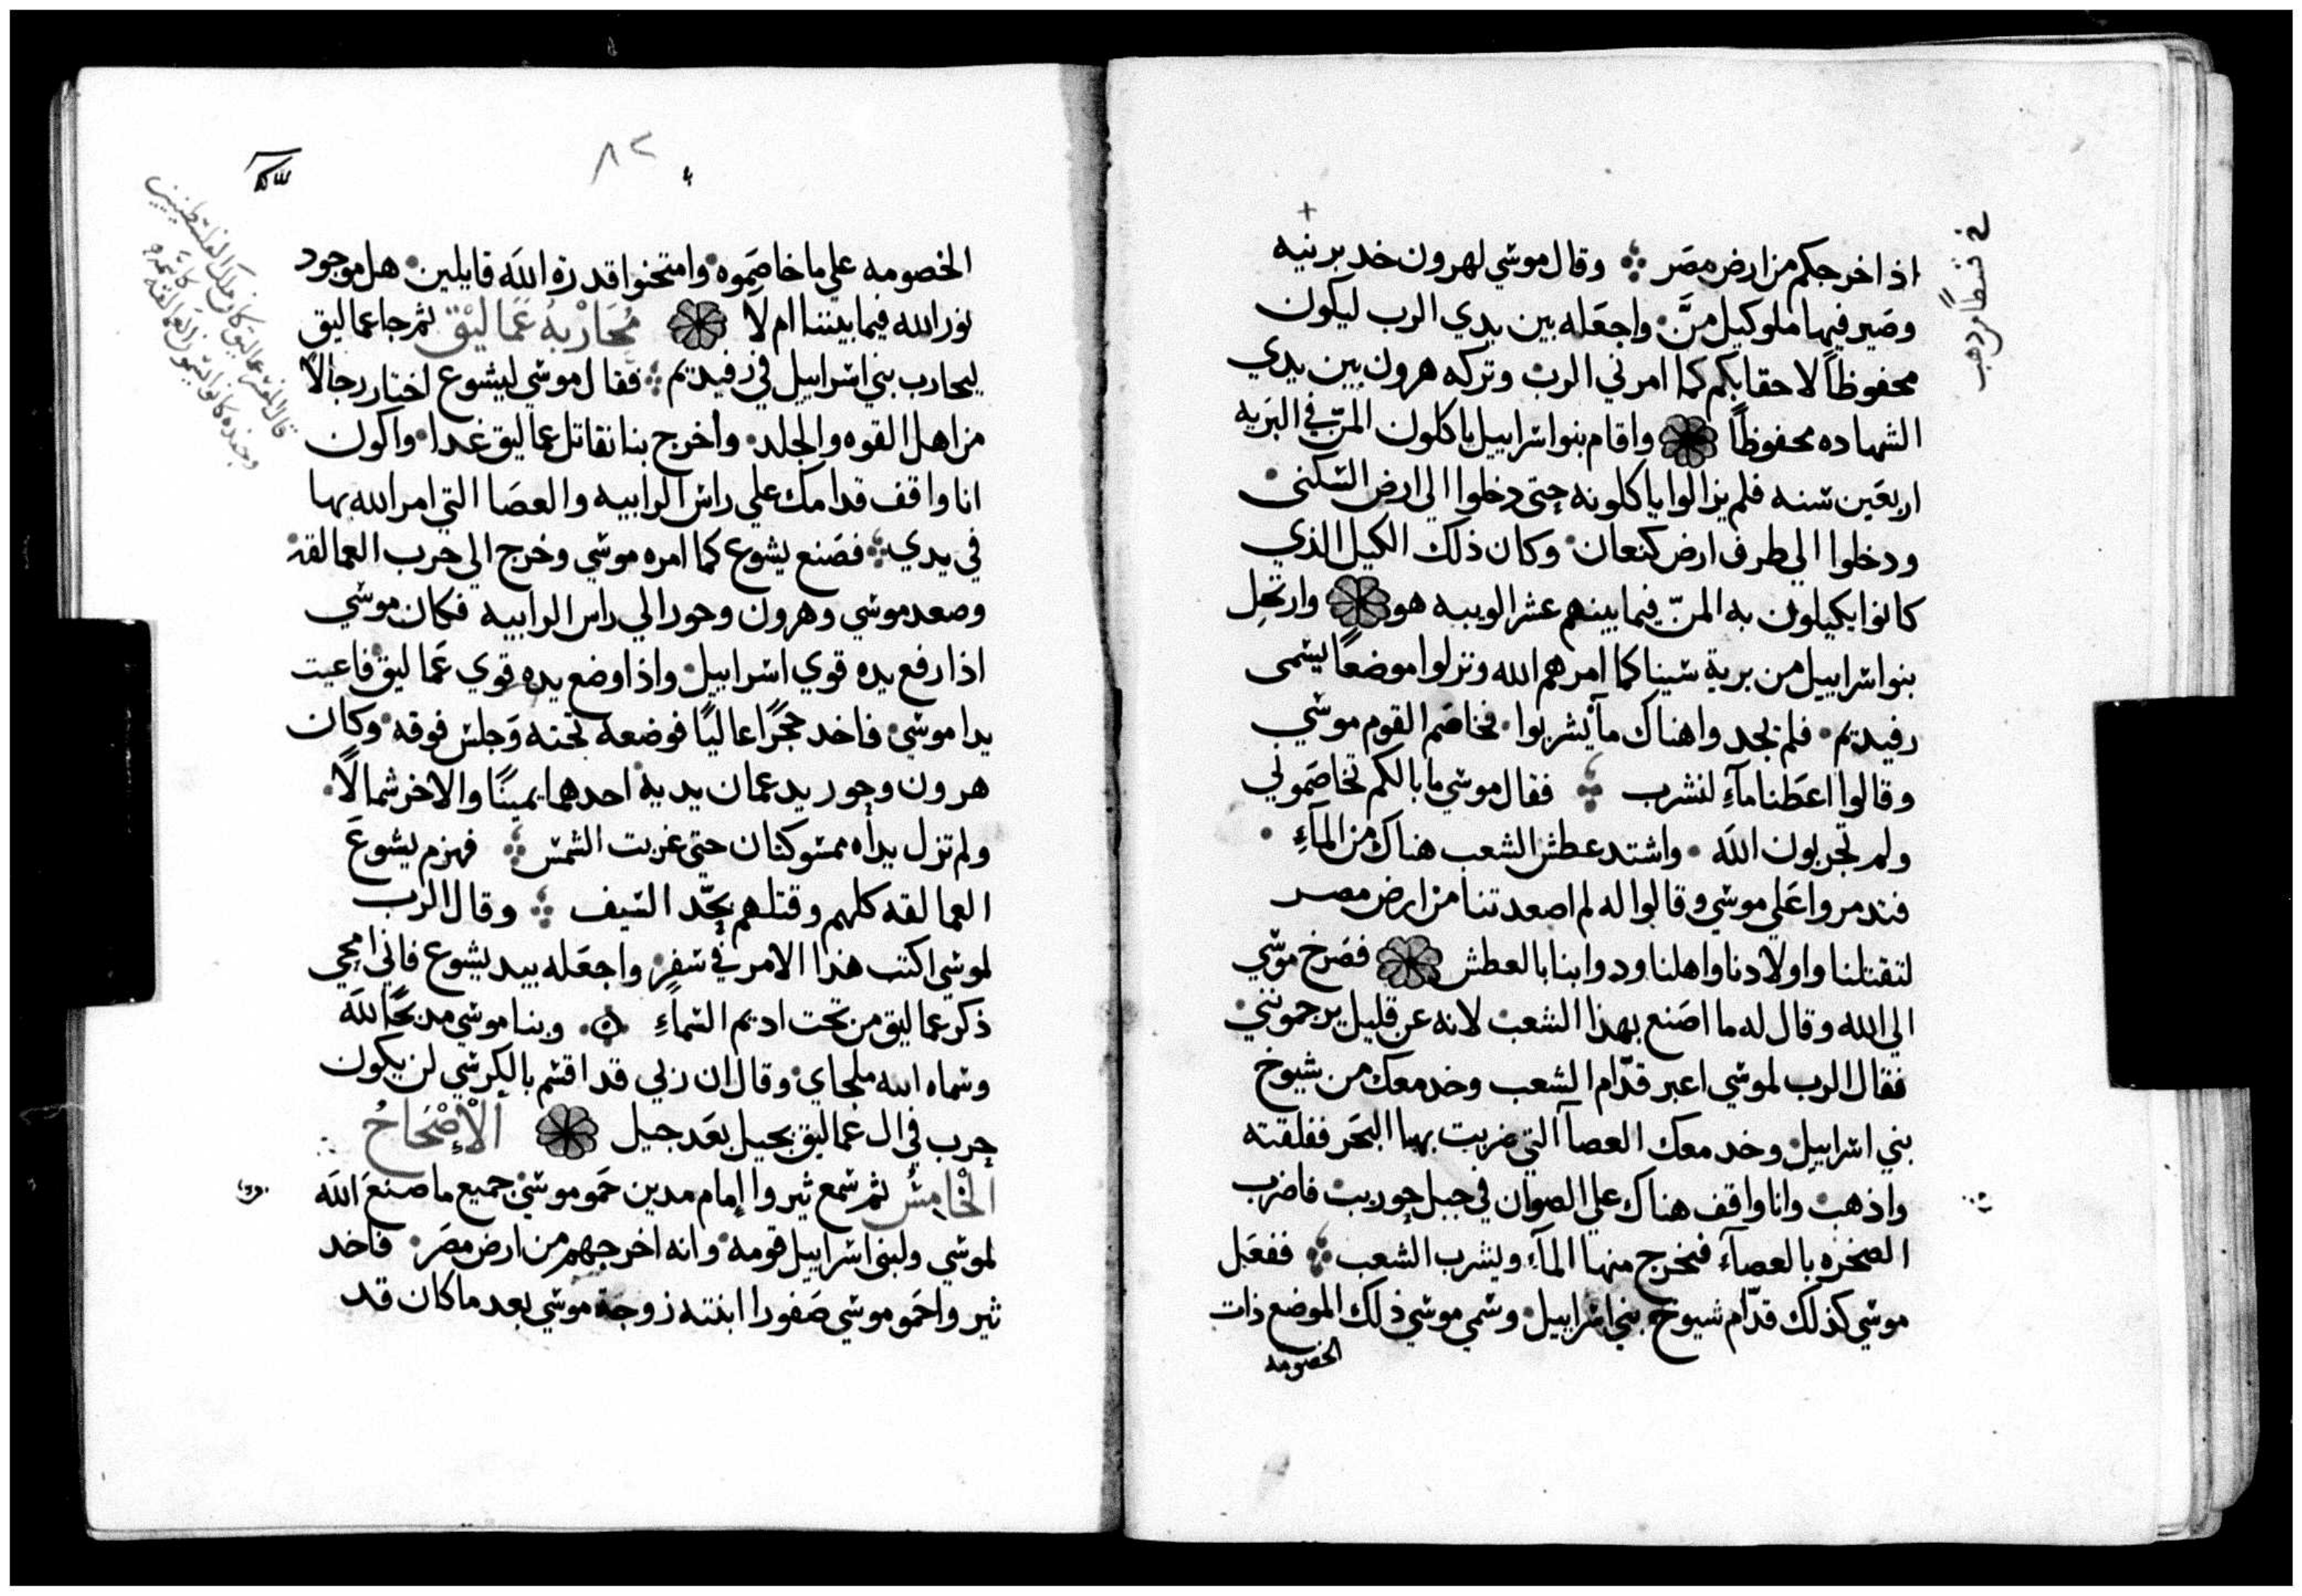 اذ اخرجكم من ارض مصَر وقال موسي لهرون خد برنيه
وصَير فيها ملو كيل منَّ واجعَله بين يدي الرب ليكون
محفوظاً لاحقابكم كما امرني الرب وتركه هرون بين يدي
الشهاده محفوظاً واقام بنو اسراييل ياكلون المنّ في البَريه
اربعَين سنه فلم يزالوا ياكلونه حتى دخلوا الي ارض السكنى
ودخلوا الي طرف ارض كنعان وكان ذلك الكيل الذي
كانوا يكيلون به المنّ فيما بينهم عشر الويبه هو وارتحل
بنو اسراييل من برية سينا كما امرهم الله ونزلوا موضعاً يسمى
رفيديم فلم يجدوا هناك مآ يشربوا فخاصَم القوم موسي
وقالوا اعطَنا مآءِ لنشرب فقال موسي ما بالكم تخاصَموني
ولم تجربون اللهَ واشتد عطش الشعب هناك من المآءِ
فتدمروا عَلي موسي وقالوا له لم اصعدتنا من ارض مصر
لتقتلنا واولادنا واهلنا ودوابنا بالعطش فصَرخ موسي
الي الله وقال له ما اصَنع بهذا الشعب لانه عن قليل يرجموننى
فقال الرب لموسي اعبر قدّام الشعب وخد معك من شيوخ
بني اسراييل وخد معك العصآ التي ضربت بها البَحر ففلقته
واذهب وانا واقف هناك علي الصوان في جبل حوريب فاضرب
الصخره بالعصآءَ فتخرج منها المآء ويشرب الشعب ففعَل
موسي كذلك قدّام شيوخ بني اسراييل وسمي موسي ذلك الموضع ذات
الخصومه
٨٢
الخصومه علي ما خاصَموه وامتحنوا قدرة اللهَ قايلين هل موجود
نور الله فيما بيننا ام لا مُحَارْبهُ عَمَاليْق ثم جا عماليق
ليحارب بني اسراييل في رفيديم فقال موسي ليشوع اختار رجالاً
من اهل القوه والجلد واخرج بنا نقاتل عماليق غدا واكون
انا واقف قدامك علي راس الرابيه والعصَا التي امر الله بها
في يدي فصَنع يشوع كما امره موسي وخرج الي حرب العمالقة
وصعد موسي وهرون وحور الي راس الرابيه فكان موسي
اذا رفع يده قوي اسراييل واذا وضع يده قوي عَماليق فاعيت
يدا موسي فاخد حجَراً عاليًا فوضعه تحته وَجلس فوقه وكان
هرون وحور يدعمان يديه احدهما يمينًا والاخر شمالاً
ولم تزل يداه ممسوكتان حتى غربت الشمس فهزم يشوعَ
العمالقه كلهم وقتلهم بحّد السَيف وقال الرب
لموسي اكتب هذا الامر في سَفرٍ واجعَله بيد يشوع فاني امحي
ذكر عماليق من تحت اديم السَماءِ وبنا موسي مدبحًا للهَ
وسماه الله ملجاي وقال ان ربي قد اقسم بالكرسَي لن يكون
حرب في ال عماليق بجيل بعَد جيل ألْأِصْحَاحُ
اَلْخَامِسُ ثم سَمع ثيروا إمام مدين حَمو موسَى جميع ما صنعَ اللهَ
لموسَي ولبنى اسراييل قومه وانه اخرجهم من ارض مصَر فاخد
ثيروا حَمو موسي صَفورا ابنته زوجة موسَي بعد ما كان قد